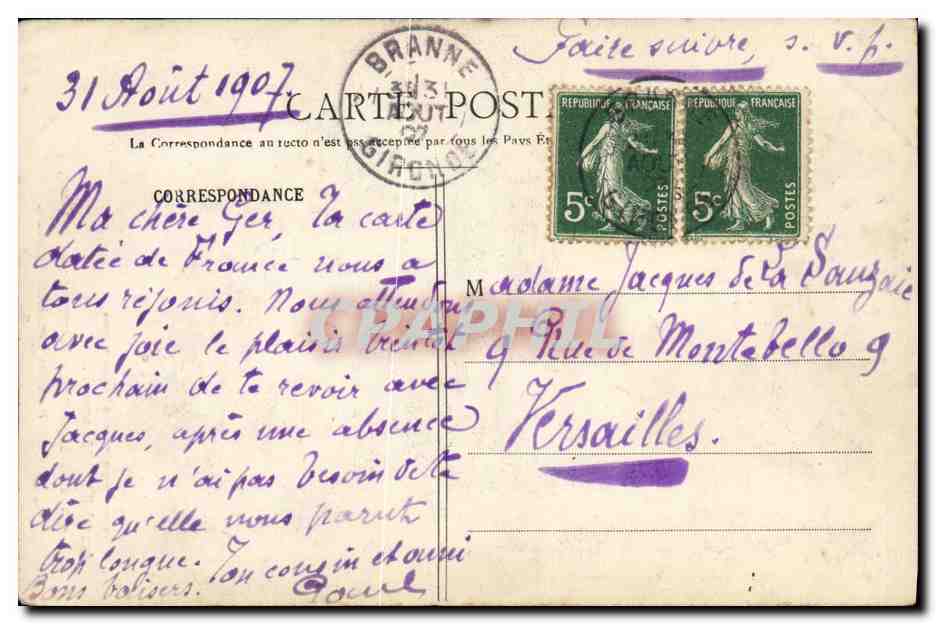 Faire suivre, s. v. p.
31 Août 1907.
CARTE POSTA
La Correspondance au recto n'est pas acceptée par tous les Pays Ét
BRANNE
31
AOUT
07
GIRONDE
REPUBLIQUE FRANÇAISE
5c
POSTES
REPUBLIQUE FRANÇAISE
5c
POSTES
CORRESPONDANCE
Ma chère Ger, Ta carte
datée de France nous a
tous réjouis. Nous attendons
avec joie le plaisir bientôt
prochain de te revoir avec
Jacques, après une absence
dont je n'ai pas besoin de te
dire qu'elle nous parut
trop longue. Ton cousin et ami
Bons baisers. Paul
Madame Jacques de La Sauzaie
9 Rue de Montebello 9
Versailles.
CPAPHIL